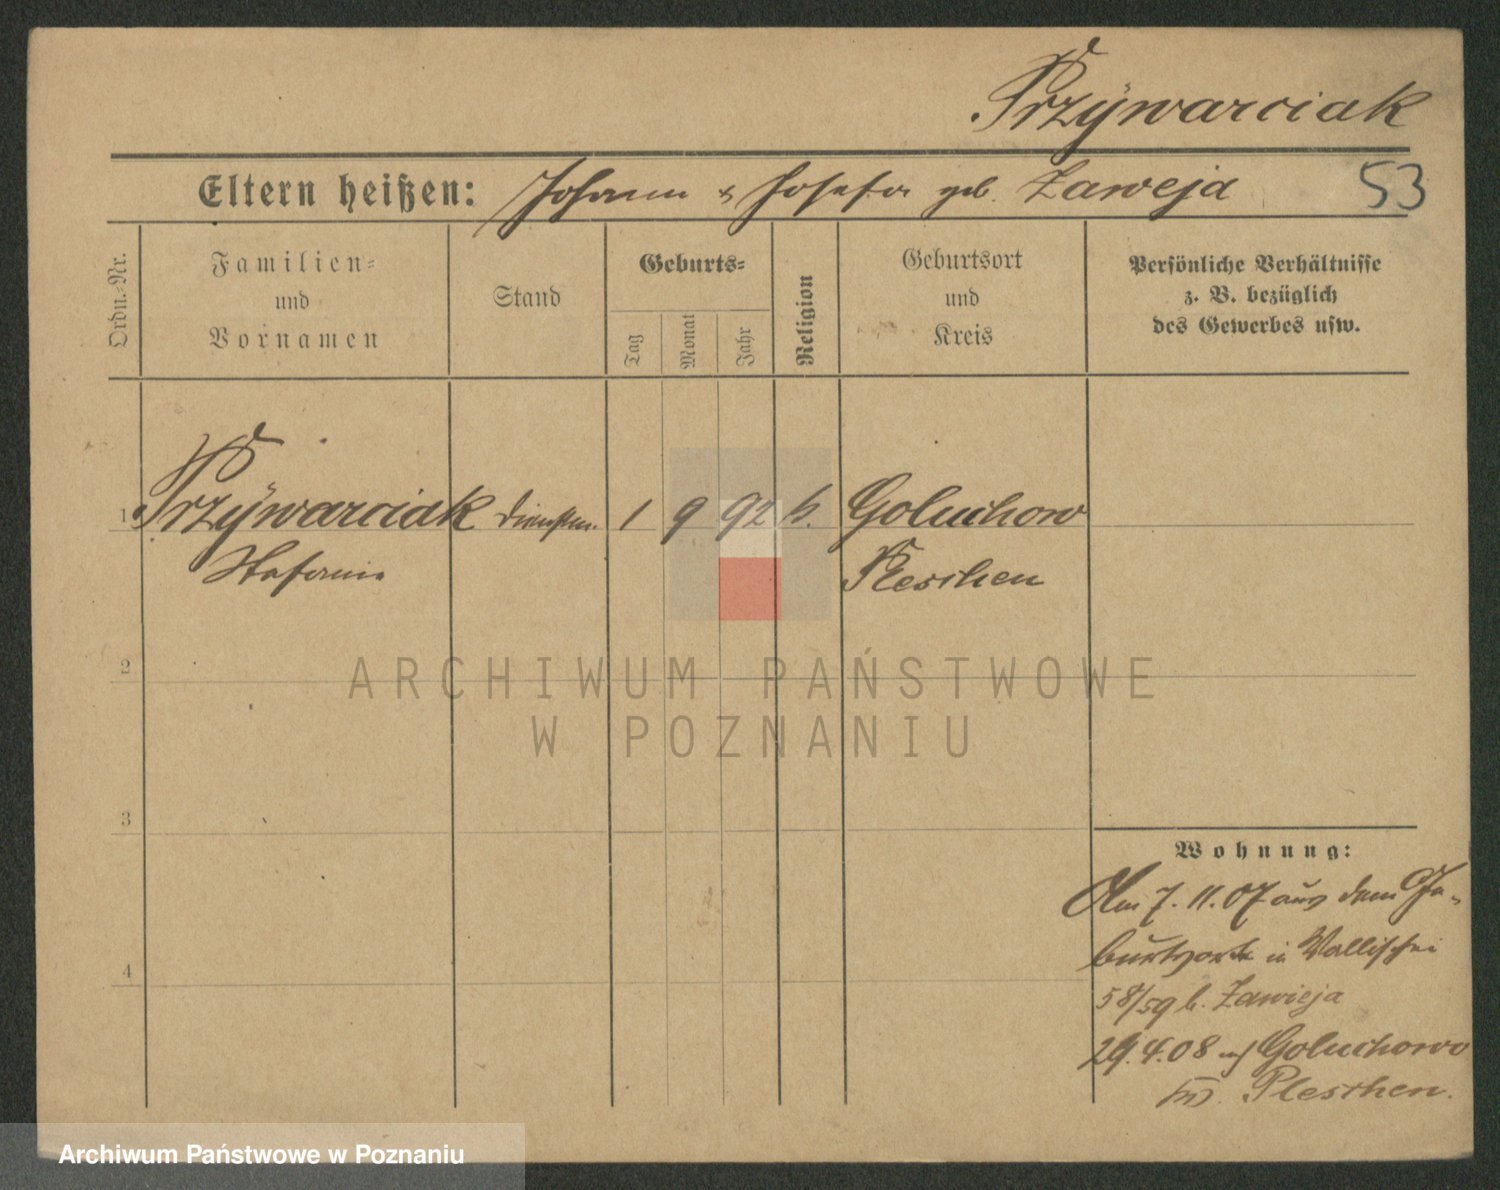 Przÿwarciak
Eltern heißen: Johann & Josefa geb. Zaweja 53
Ordn.-Nr.
Familien-
und
Vornamen
Stand
Geburts-
Tag
Monat
Jahr
Religion
Geburtsort
und
Kreis
Persönliche Verhältnisse
z. B. bezüglich
des Gewerbes usw.
1 Przÿwarciak Dienstm. 1 9 92 k. Goluchow
Stefanie Pleschen
2
ARCHIWUM PAŃSTWOWE
W POZNANIU
3
Wohnung:
Am 7.11.07 aus dem Ge-
burtsorte in Wallischei
58/59 b. Zawieja
4
29.4.08 n/ Goluchowo
Pleschen.
Archiwum Państwowe w Poznaniu